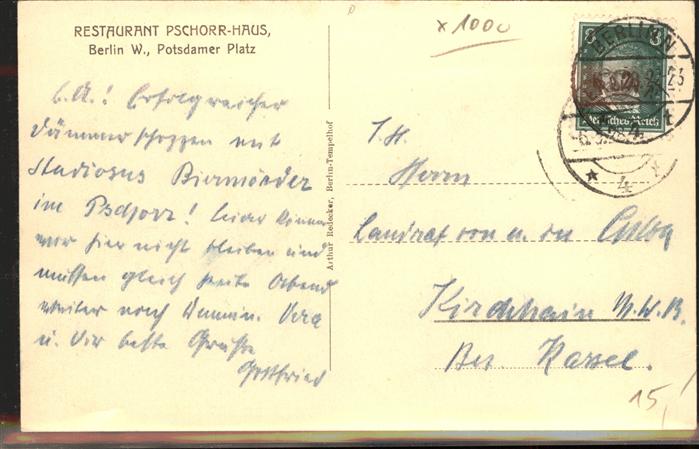 RESTAURANT PSCHORR-HAUS,
Berlin W., Potsdamer Platz
x 1000
BERLIN
8 8
Deutsches Reich
4
L. A.! Erfolgreicher
Dämmerschoppen mit
Studiosus Biermörder
im Pschorr! Leider können
wir hier nicht bleiben und
müssen gleich heute Abend
weiter nach
u. Dir beste Grüße
Gottfried
Arthur Redecker, Berlin-Tempelhof
S. H.
Herrn
Landrat von u. zu Gilsa
Kirchhain M.W.B.
Bez. Kassel.
15,